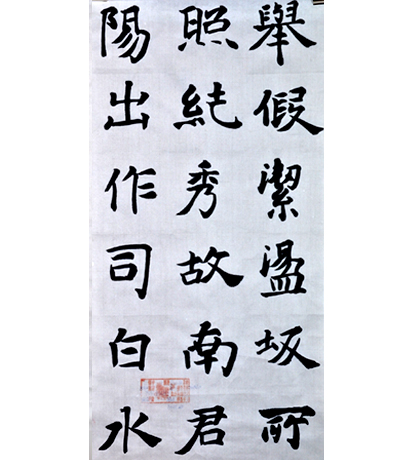 舉假潔盪坂所
照純秀故南君
陽出作司白水